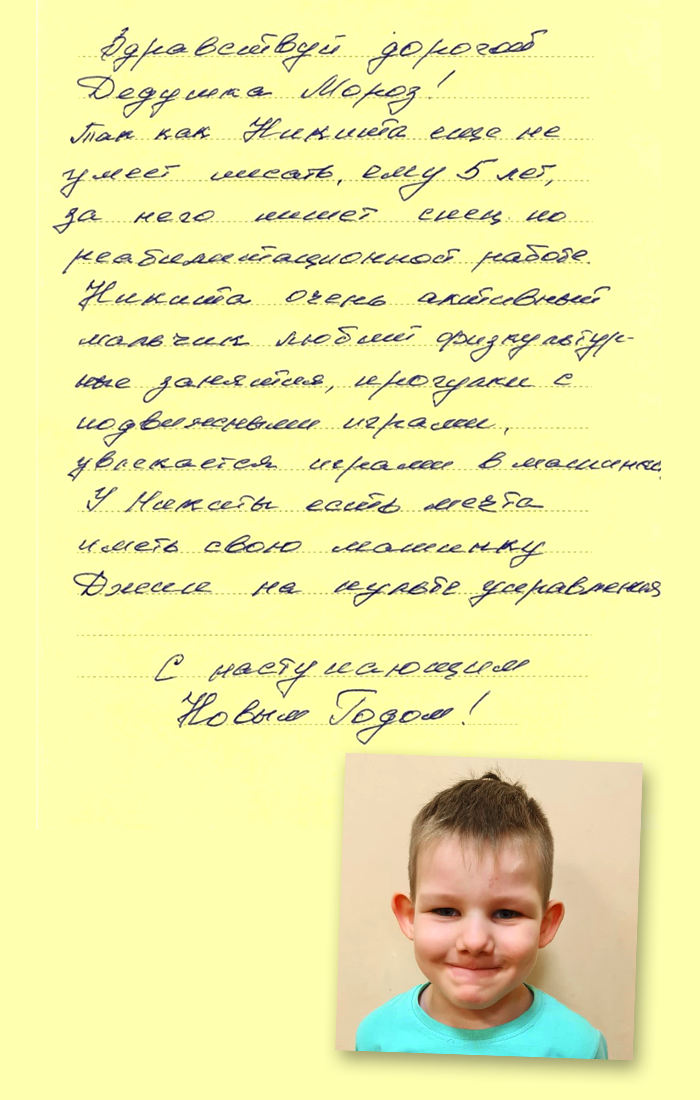 Здравствуй дорогой
Дедушка Мороз!
Так как Никита еще не
умеет писать, ему 5 лет,
за него пишет спец. по
реабилитационной работе.
Никита очень активный
мальчик любит физкультур-
ные занятия, прогулки с
подвижными играми,
увлекается играми в машинки,
У Никиты есть мечта
иметь свою машинку
Джип на пульте управления
С наступающим
Новым Годом!